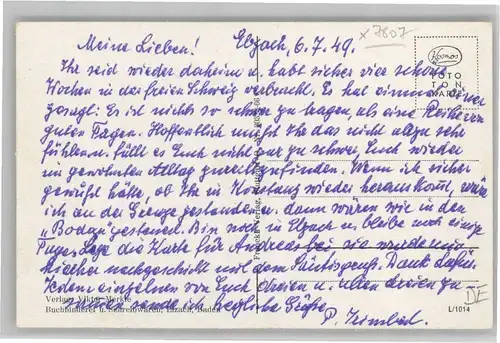 x 7807
Meine Lieben! Elzach, 6.7.49.
Ihr seid wieder daheim u. habt sicher vier schöne
Wochen in der freien Schweiz verbracht. Es hat einmal einer
gesagt: Es ist nichts so schwer zu tragen, als eine Reihe von
guten Tagen. Hoffentlich müßt Ihr das nicht allzu sehr
fühlen u. fällt es Euch nicht gar zu schwer, Euch wieder
im gewohnten Alltag zurechtzufinden. Wenn ich sicher
gewußt hätte, ob Ihr in Konstanz wieder herauskommt, wäre
ich an der Grenze gestanden u. dann wären wir in den
"Bodan" gestanden. Bin noch in Elzach u. bleibe noch einige
Tage. Lege die Karte für Andreas bei, sie wurde von
nachgeschickt mit dem Säntisgruß. Dank dafür.
Jedem einzelnen von Euch dreien u. allen dreien zu-
sammen sende ich herzliche Grüße
P.
Kosmos
FOTO
TON
KARTE
Verlag Viktor Merkle
Buchbinderei u. Schreibwaren, Elzach, Baden
L/1014
DE